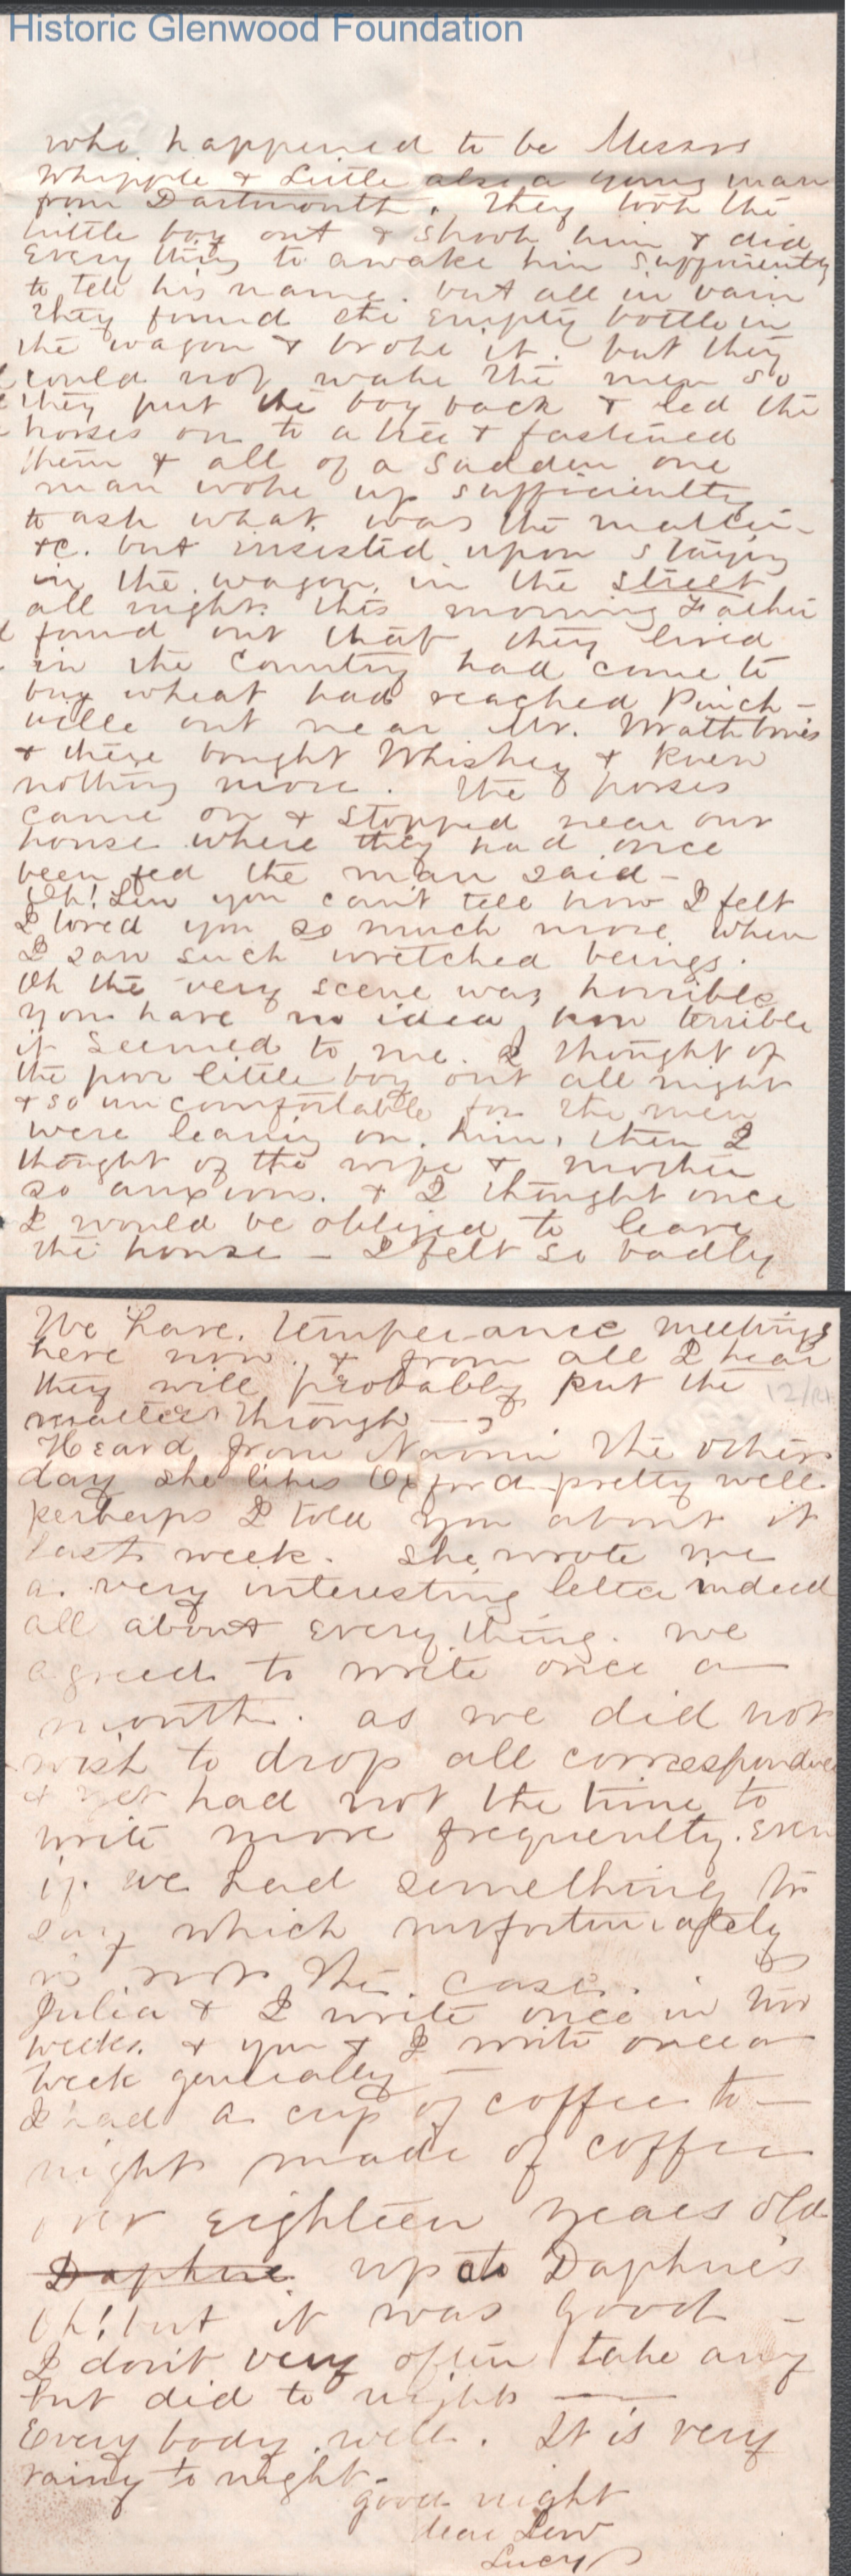 Historic Glenwood Foundation
who happened to be Messrs
Whipple & Little also a young man
from Dartmouth. They took the
little boy out & shook him & did
every thing to awake him sufficiently
to tell his name. but all in vain
They found the empty bottle in
the wagon & broke it. but they
could not wake the men so
they put the boy back & led the
horses on to a tree & fastened
them & all of a sudden one
man woke up sufficiently
to ask what was the matter
&c. but insisted upon staying
in the wagon in the street
all night. this morning Father
found out that they lived
in the Country had come to
buy wheat had reached Punch-
ville out near Mr. Wrathbone's
& there bought Whiskey & knew
nothing more. The horses
came on & stopped near our
house where they had once
been fed the man said -
Oh! Lew you can't tell how I felt
I loved you so much more when
I saw such wretched beings.
Oh the very scene was horrible
you have no idea how terrible
it seemed to me. I thought of
the poor little boy out all night
& so uncomfortable for the men
were leaning on him, then I
thought of the wife & mother
so anxious. & I thought once
I would be obliged to leave
the house - I felt so badly
We have. temperance meetings
here now. & from all I hear
they will probably put the
matter through -
Heard from Naomi the other
day she likes Oxford pretty well
perhaps I told you about it
last week. She wrote me
a very interesting letter indeed
all about every thing. we
agreed to write once a
month. as we did not
wish to drop all correspondence
& yet had not the time to
write more frequently. Even
if we had something to
say which unfortunately
is not the case.
Julia & I write once in two
weeks. & you & I write once a
week generally -
I had a cup of coffee to-
night made of coffee
over eighteen years old
Daphne up to Daphne's
Oh! but it was good -
I don't very often take any
but did to night -
Every body well. It is very
rainy to night.
good night
dear Lew
Lucy